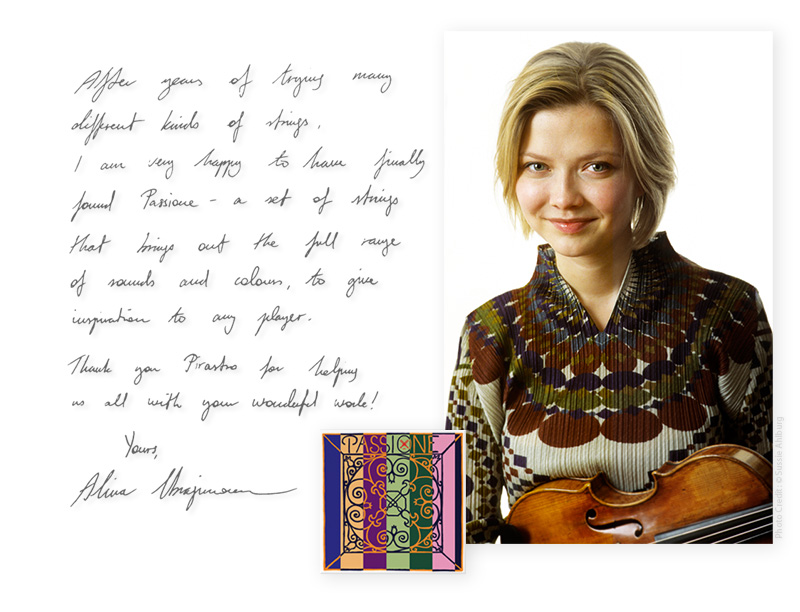 After years of trying many
different kinds of strings,
I am very happy to have finally
found Passione - a set of strings
that brings out the full range
of sounds and colours, to give
inspiration to any player.
Thank you Pirastro for helping
us all with your wonderful work!
Yours,
Alina
PASSIONE
Photo Credit: ©Sussie Ahlburg